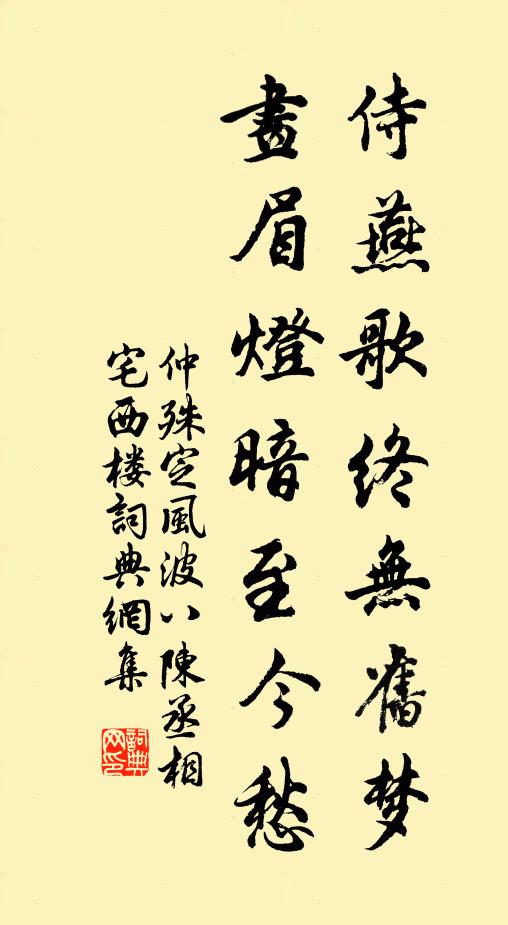 侍燕歌终無舊梦
畫眉燈暗至今愁
仲殊定風波八陳丞相
宅西楼詞典網集
詞典网印